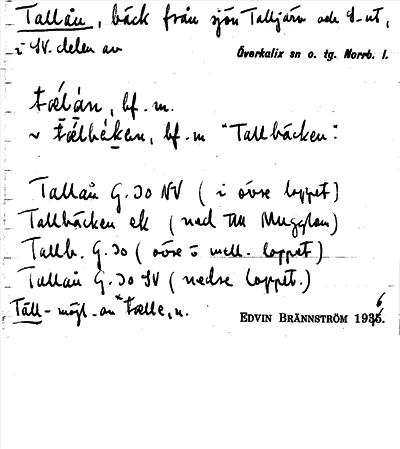 Tallån, bäck från sjön Talltjärn och S-ut,
i SV. delen av
Överkalix sn o. tg. Norrb. l.
tælån, bf. m.
~ tælbéken, bf. m "Tallbäcken".
Tallån G. 30 NV (i övre loppet)
Tallbäcken ek (ned till
Tallb. G. 30 (övre o mell. loppet)
Tallån G. 30 SV (nedre loppet.)
Täll- möjl. av *tælle, n.
EDVIN BRÄNNSTRÖM 1936.